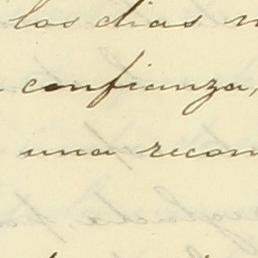 los dias
confianza,
una recon